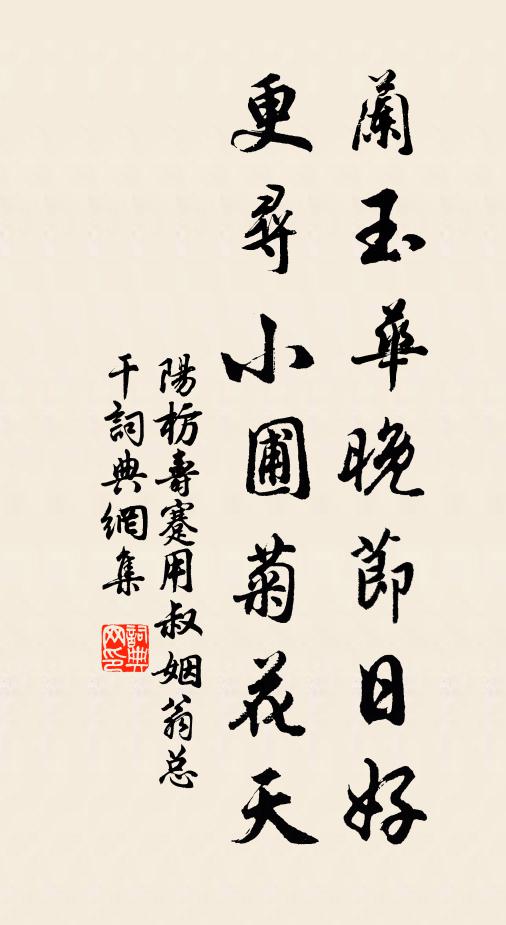 蘭玉華晚節日好
更尋小圃菊花天
陽枋壽蹇用叔姻翁总
干詞典網集
詞典
网印